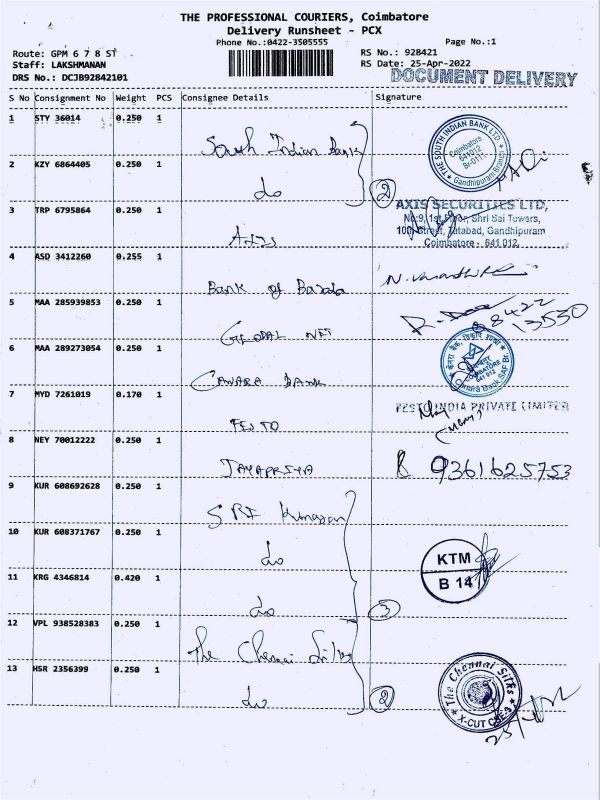 THE PROFESSIONAL COURIERS, Coimbatore
Delivery Runsheet - PCX
Phone No.:0422-3505555 Page No.:1
Route: GPM 6 7 8 ST RS No.: 928421
Staff: LAKSHMANAN RS Date: 25-Apr-2022
DRS No.: DCJB92842101 DOCUMENT DELIVERY
S No Consignment No Weight PCS Consignee Details Signature
1 STY 36014 0.250 1 South Indian Bank
THE SOUTH INDIAN BANK LTD. Coimbatore 641012 Gandhipuram Branch
2 KZY 6864405 0.250 1 do 2
3 TRP 6795864 0.250 1 Axis
AXIS SECURITIES LTD,
No:9, 1st Floor, Shri Sai Towers,
100 Street, Tatabad, Gandhipuram
Coimbatore - 641 012.
4 ASD 3412260 0.255 1 Bank of Baroda
5 MAA 285939853 0.250 1 GLOBAL NET
88422
13550
6 MAA 289273054 0.250 1 CANARA BANK
COIMBATORE 641 012 Canara Bank SAF Br.
7 MYD 7261019 0.170 1 FESTO
FESTO INDIA PRIVATE LIMITED
8 NEY 70012222 0.250 1 JAYAPRIYA 9361625753
9 KUR 608692628 0.250 1 SRI Kumaran
10 KUR 608371767 0.250 1 do
KTM
B 14
11 KRG 4346814 0.420 1 do 3
12 VPL 938528383 0.250 1 The Chennai Silks
13 HSR 2356399 0.250 1 do 2
The Chennai Silks X-CUT CBE-9